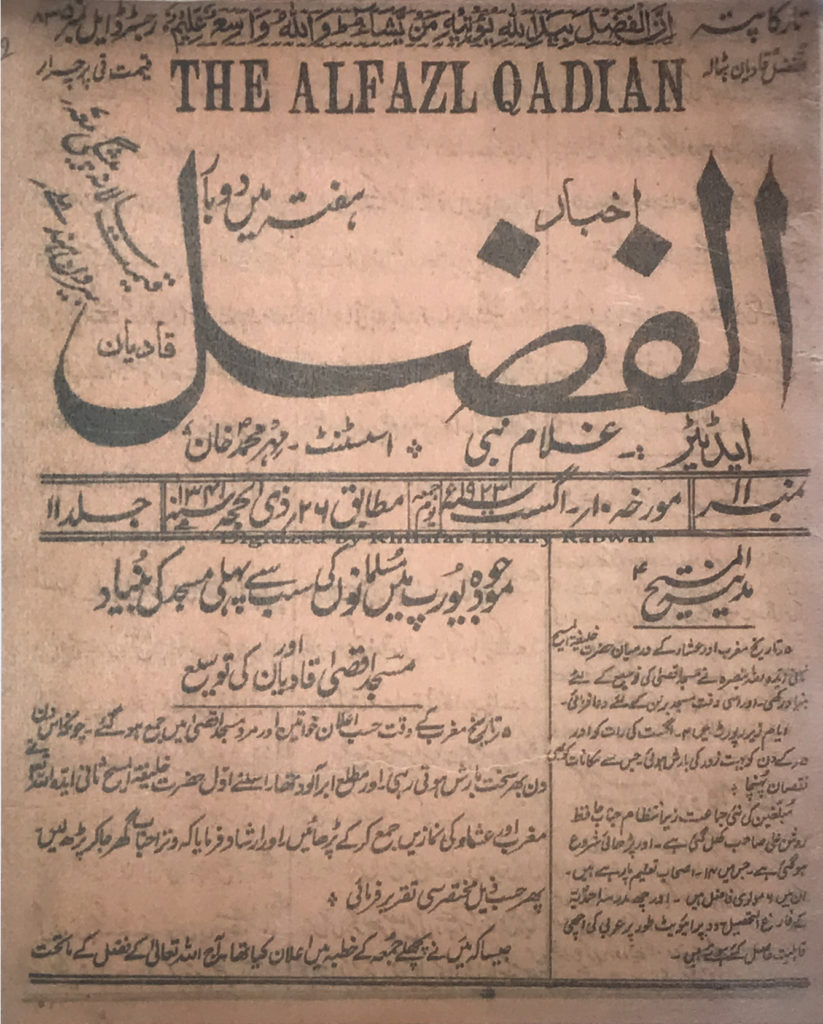 تار کا پتہ
الفضل قادیان بٹالہ
اِنَّ الْفَضْلَ بِيَدِ اللهِ يُؤْتِيْهِ مَنْ يَّشَآءُ وَاللهُ وَاسِعٌ عَلِيْمٌ
رجسٹرڈ ایل نمبر ۸۳۵
قیمت فی پرچہ ار
THE ALFAZL QADIAN
اخبار
ہفتہ میں دو بار
الفضل
قادیان
قیمت سالانہ پیشگی
ایڈیٹر :۔ غلام نبی ❖ اسسٹنٹ ۔ مہر محمد خان
نمبر ۱۱ مورخہ ۱۰۔ اگست ۱۹۲۳ء یوم جمعہ مطابق ۲۶ ذی الحجہ ۱۳۴۱ جلد ۱۱
Digitized by Khilafat Library Rabwah
المسیح
مدینۃ
۵ تاریخ مغرب اور عشاء کے درمیان حضرت خلیفۃ المسیح
ثانی ایدہ اللہ بنصرہ نے مسجد اقصیٰ کی توسیع کے لئے
بنیاد رکھی۔ اور اسی وقت مسجد برلن کے لئے دعا فرمائی۔
ایام زیر رپورٹ میں ۴۔ اگست کی رات کو اور
۵ کے دن کو بہت زور کی بارش ہوئی جس سے مکانات کو بھی
نقصان پہنچا ❖
مبلغین کی نئی جماعت زیر انتظام جناب حافظ
روشن علی صاحب کھل گئی ہے۔ اور پڑھائی شروع
ہو گئی ہے۔ جس میں ۱۳۔ اصحاب تعلیم پا رہے ہیں۔
ان میں ۶ مولوی فاضل ہیں۔ اور چھ مدرسہ احمدیہ
کے فارغ التحصیل۔ دو پرائیویٹ طور پر عربی کی اچھی
قابلیت حاصل کئے ہوئے ہیں۔
موجودہ یورپ میں مسلمانوں کی سب سے پہلی مسجد کی بنیاد
اور
مسجد اقصیٰ قادیان کی توسیع
۵ تاریخ مغرب کے وقت حسب اعلان خواتین اور مرد مسجد اقصیٰ میں جمع ہو گئے۔ چونکہ اس دن
دن بھر سخت بارش ہوتی رہی۔ اور مطلع ابر آلود تھا۔ اسلئے اوّل حضرت خلیفۃ المسیح ثانی ایدہ اللہ
مغرب اور عشاء کی نمازیں جمع کر کے پڑھائیں۔ اور ارشاد فرمایا کہ وتر احباب گھر جا کر پڑھ لیں
پھر حسب ذیل مختصر سی تقریر فرمائی ❖
جیسا کہ میں نے پچھلے جمعہ کے خطبہ میں اعلان کیا تھا۔ آج اللہ تعالیٰ کے فضل کے ماتحت